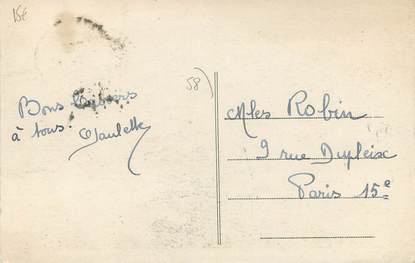 15€
58
Bons baisers
à tous.
Paulette
Mles Robin
9 rue Dupleix
Paris 15e